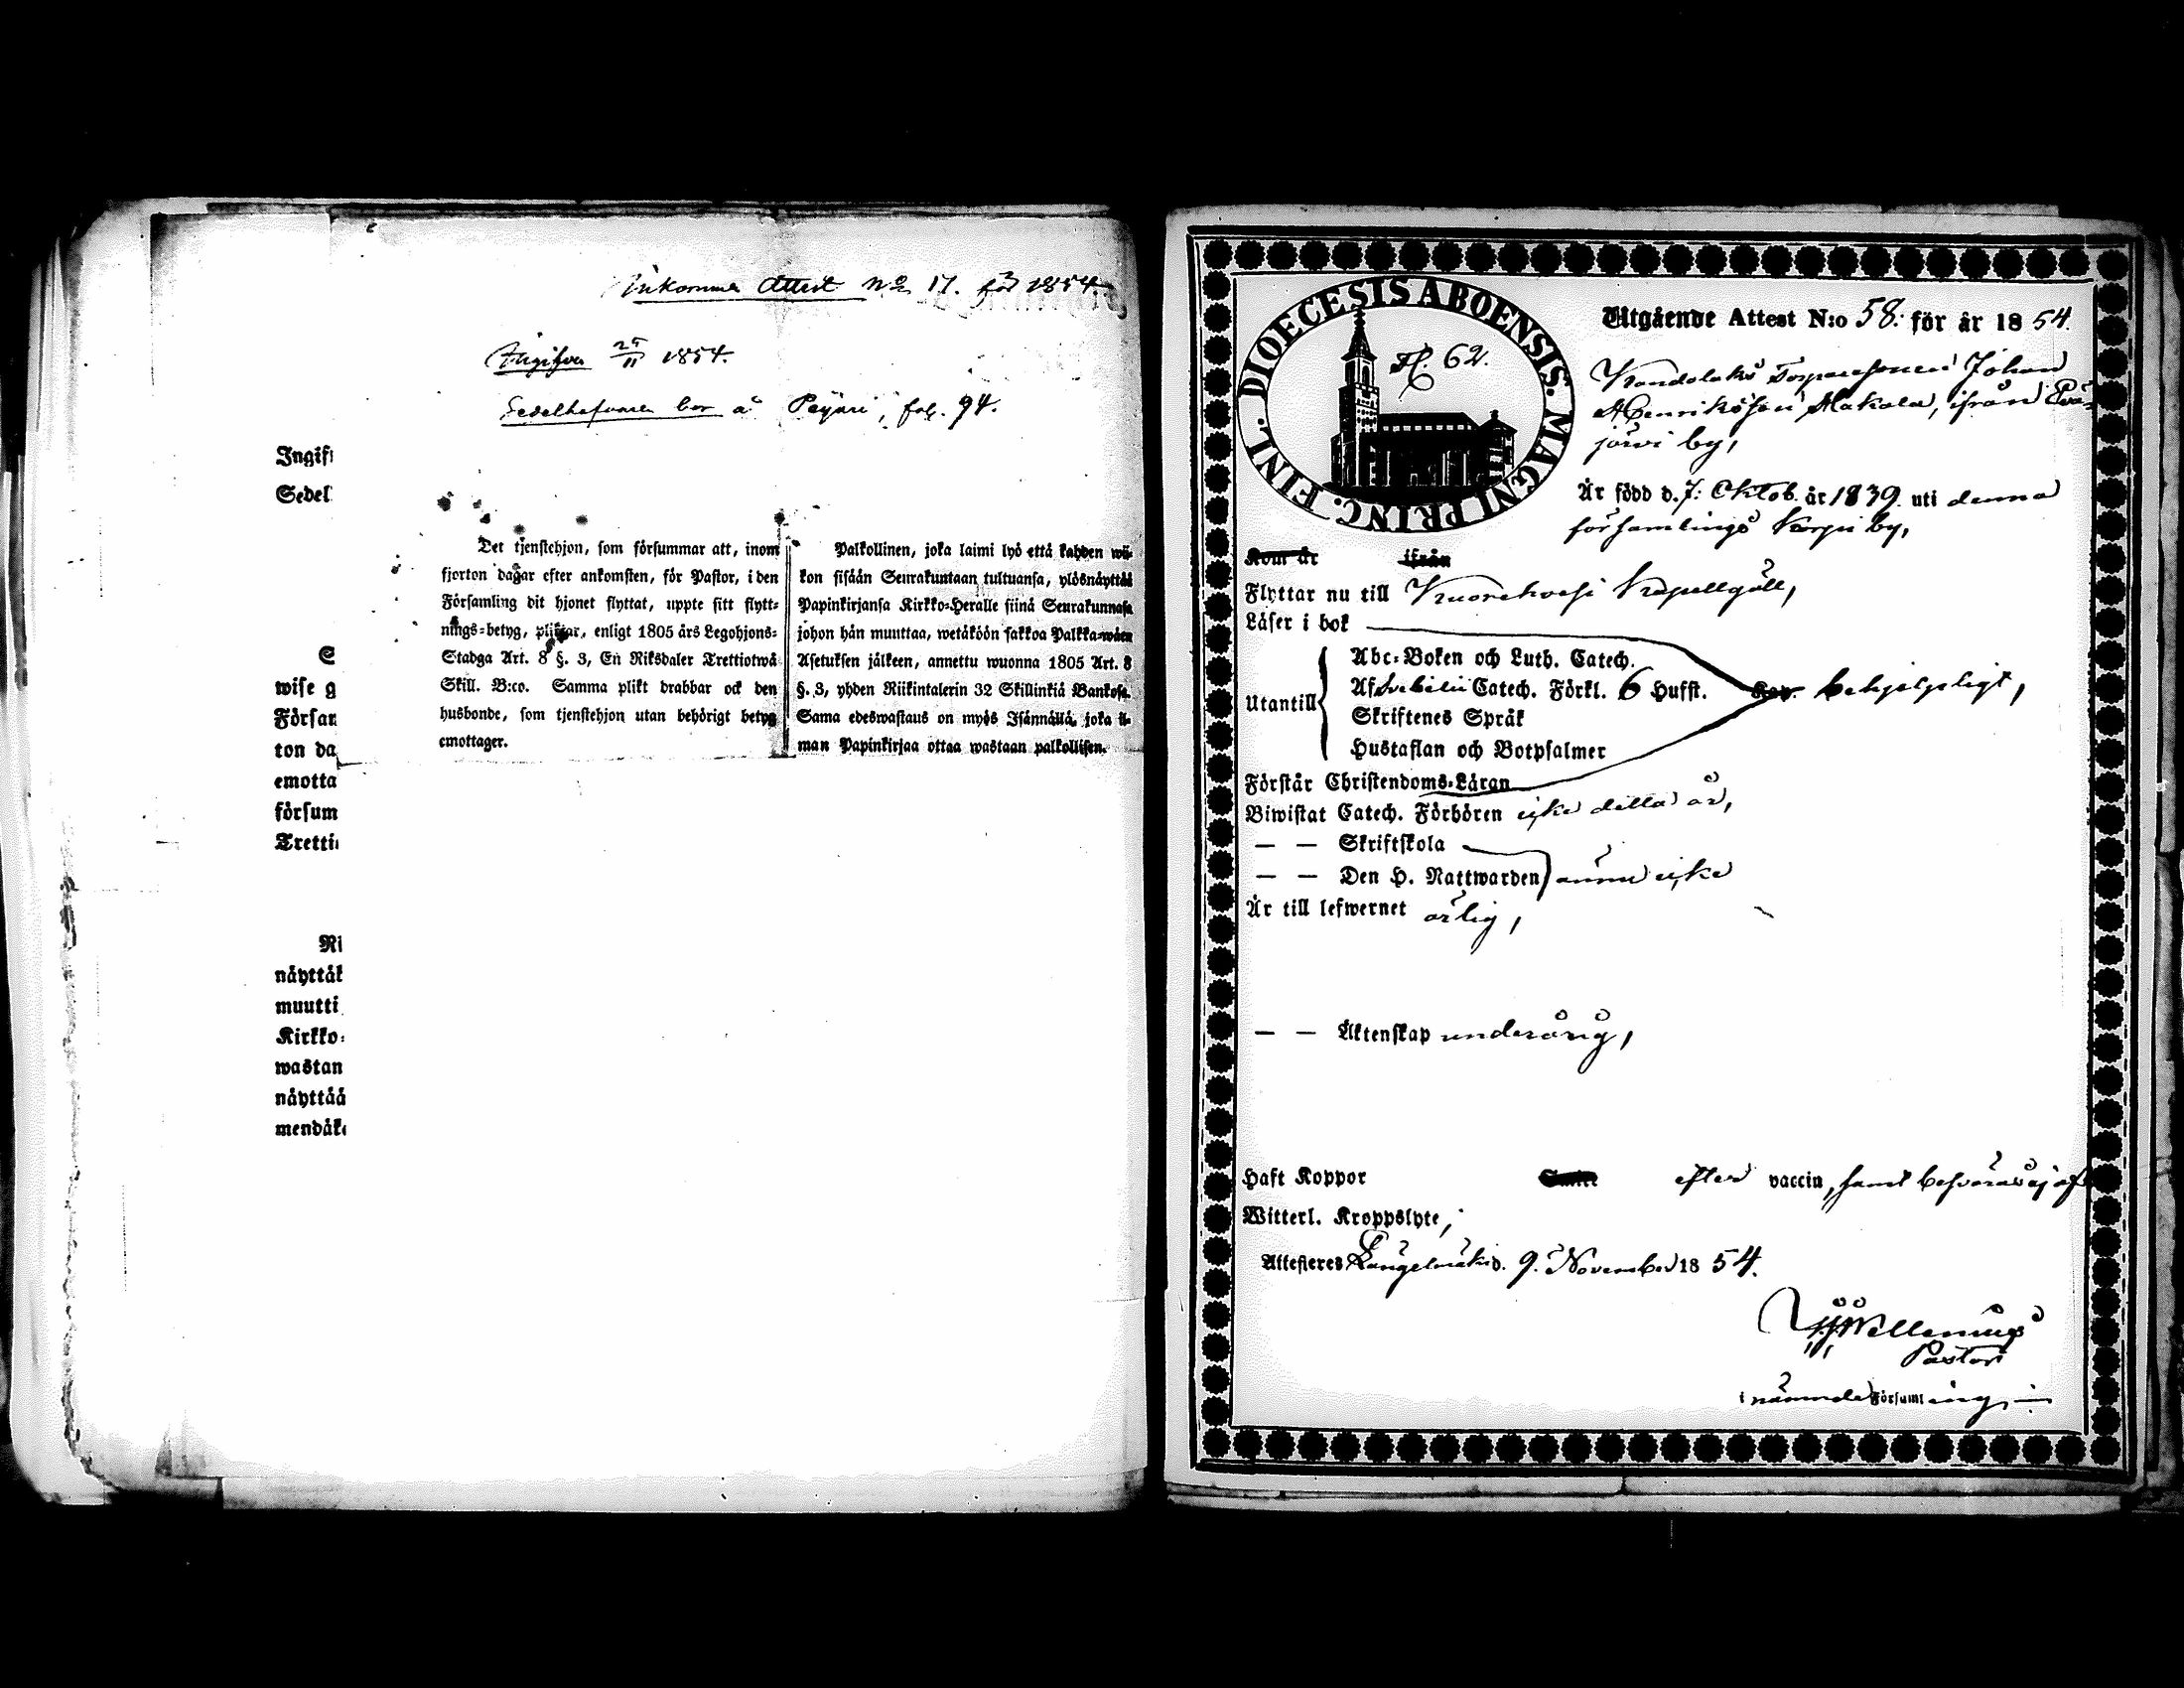 Inkommen Attest No 17. för 1854.
Ingifven 25/11 1854.
Sedelhafvaren bor å Peyäri, fol. 94.
Ingif
Sedel
Det tjenstehjon, som försummar att, inom
fjorton dagar efter ankomsten, för Pastor, i den
Församling dit hjonet flyttat, uppte sitt flytt-
nings-betyg, pliktar, enligt 1805 års Legohjons-
Stadga Art. 8 §. 3, En Riksdaler Trettiotwå
Skill. B:co. Samma plikt drabbar ock den
husbonde, som tjenstehjon utan behörigt betyg
emottager.
Palkollinen, joka laimi lyö että kahden wii-
kon sisään Seurakuntaan tultuansa, ylösnäyttää
Papinkirjansa Kirkko-Heralle siinä Seurakunnasa
johon hän muuttaa, wetäköön sakkoa Palkka-wäen
Asetuksen jälkeen, annettu wuonna 1805 Art. 8
§. 3, yhden Riikintalerin 32 Skillinkiä Bankosa.
Sama edeswastaus on myös Isännällä, joka il-
man Papinkirjaa ottaa wastaan palkollisen.
S
wise g
Försar
ton da
emotta
försum
Tretti
Ri
näyttäk
muutti
Kirkko-
wastan
näyttää
mendäk
DIOECESIS ABOENSIS. MAGNI PRINC. FINL.
fl. 62.
Utgående Attest N:o 58. för år 1854.
Torparesonen Johan
Henriksson Makala, ifrån
järvi by,
Är född d. 7. Oktob. år 1839. uti denna
församlings Korpi by,
Kom år ifrån
Flyttar nu till Kuorehvesi Kapellgäll,
Läser i bok
Utantill
Abc-Boken och Luth. Catech.
Af Svebilii Catech. Förkl. 6 Hufst. behjelpligt,
Skriftenes Språk
Hustaflan och Botpsalmer
Förstår Christendoms-Läran
Biwistat Catech. Förhören icke detta år,
— — Skriftskola
— — Den H. Nattwarden ännu icke
Är till lefwernet ärlig,
— — Äktenskap underårig,
Haft Koppor efter vaccin, samt besväras ej af
Witterl. Kroppslyte,
Attesteras Längelmäki d. 9. November 1854.
Wellenius
Pastor
i nämnde Församling.